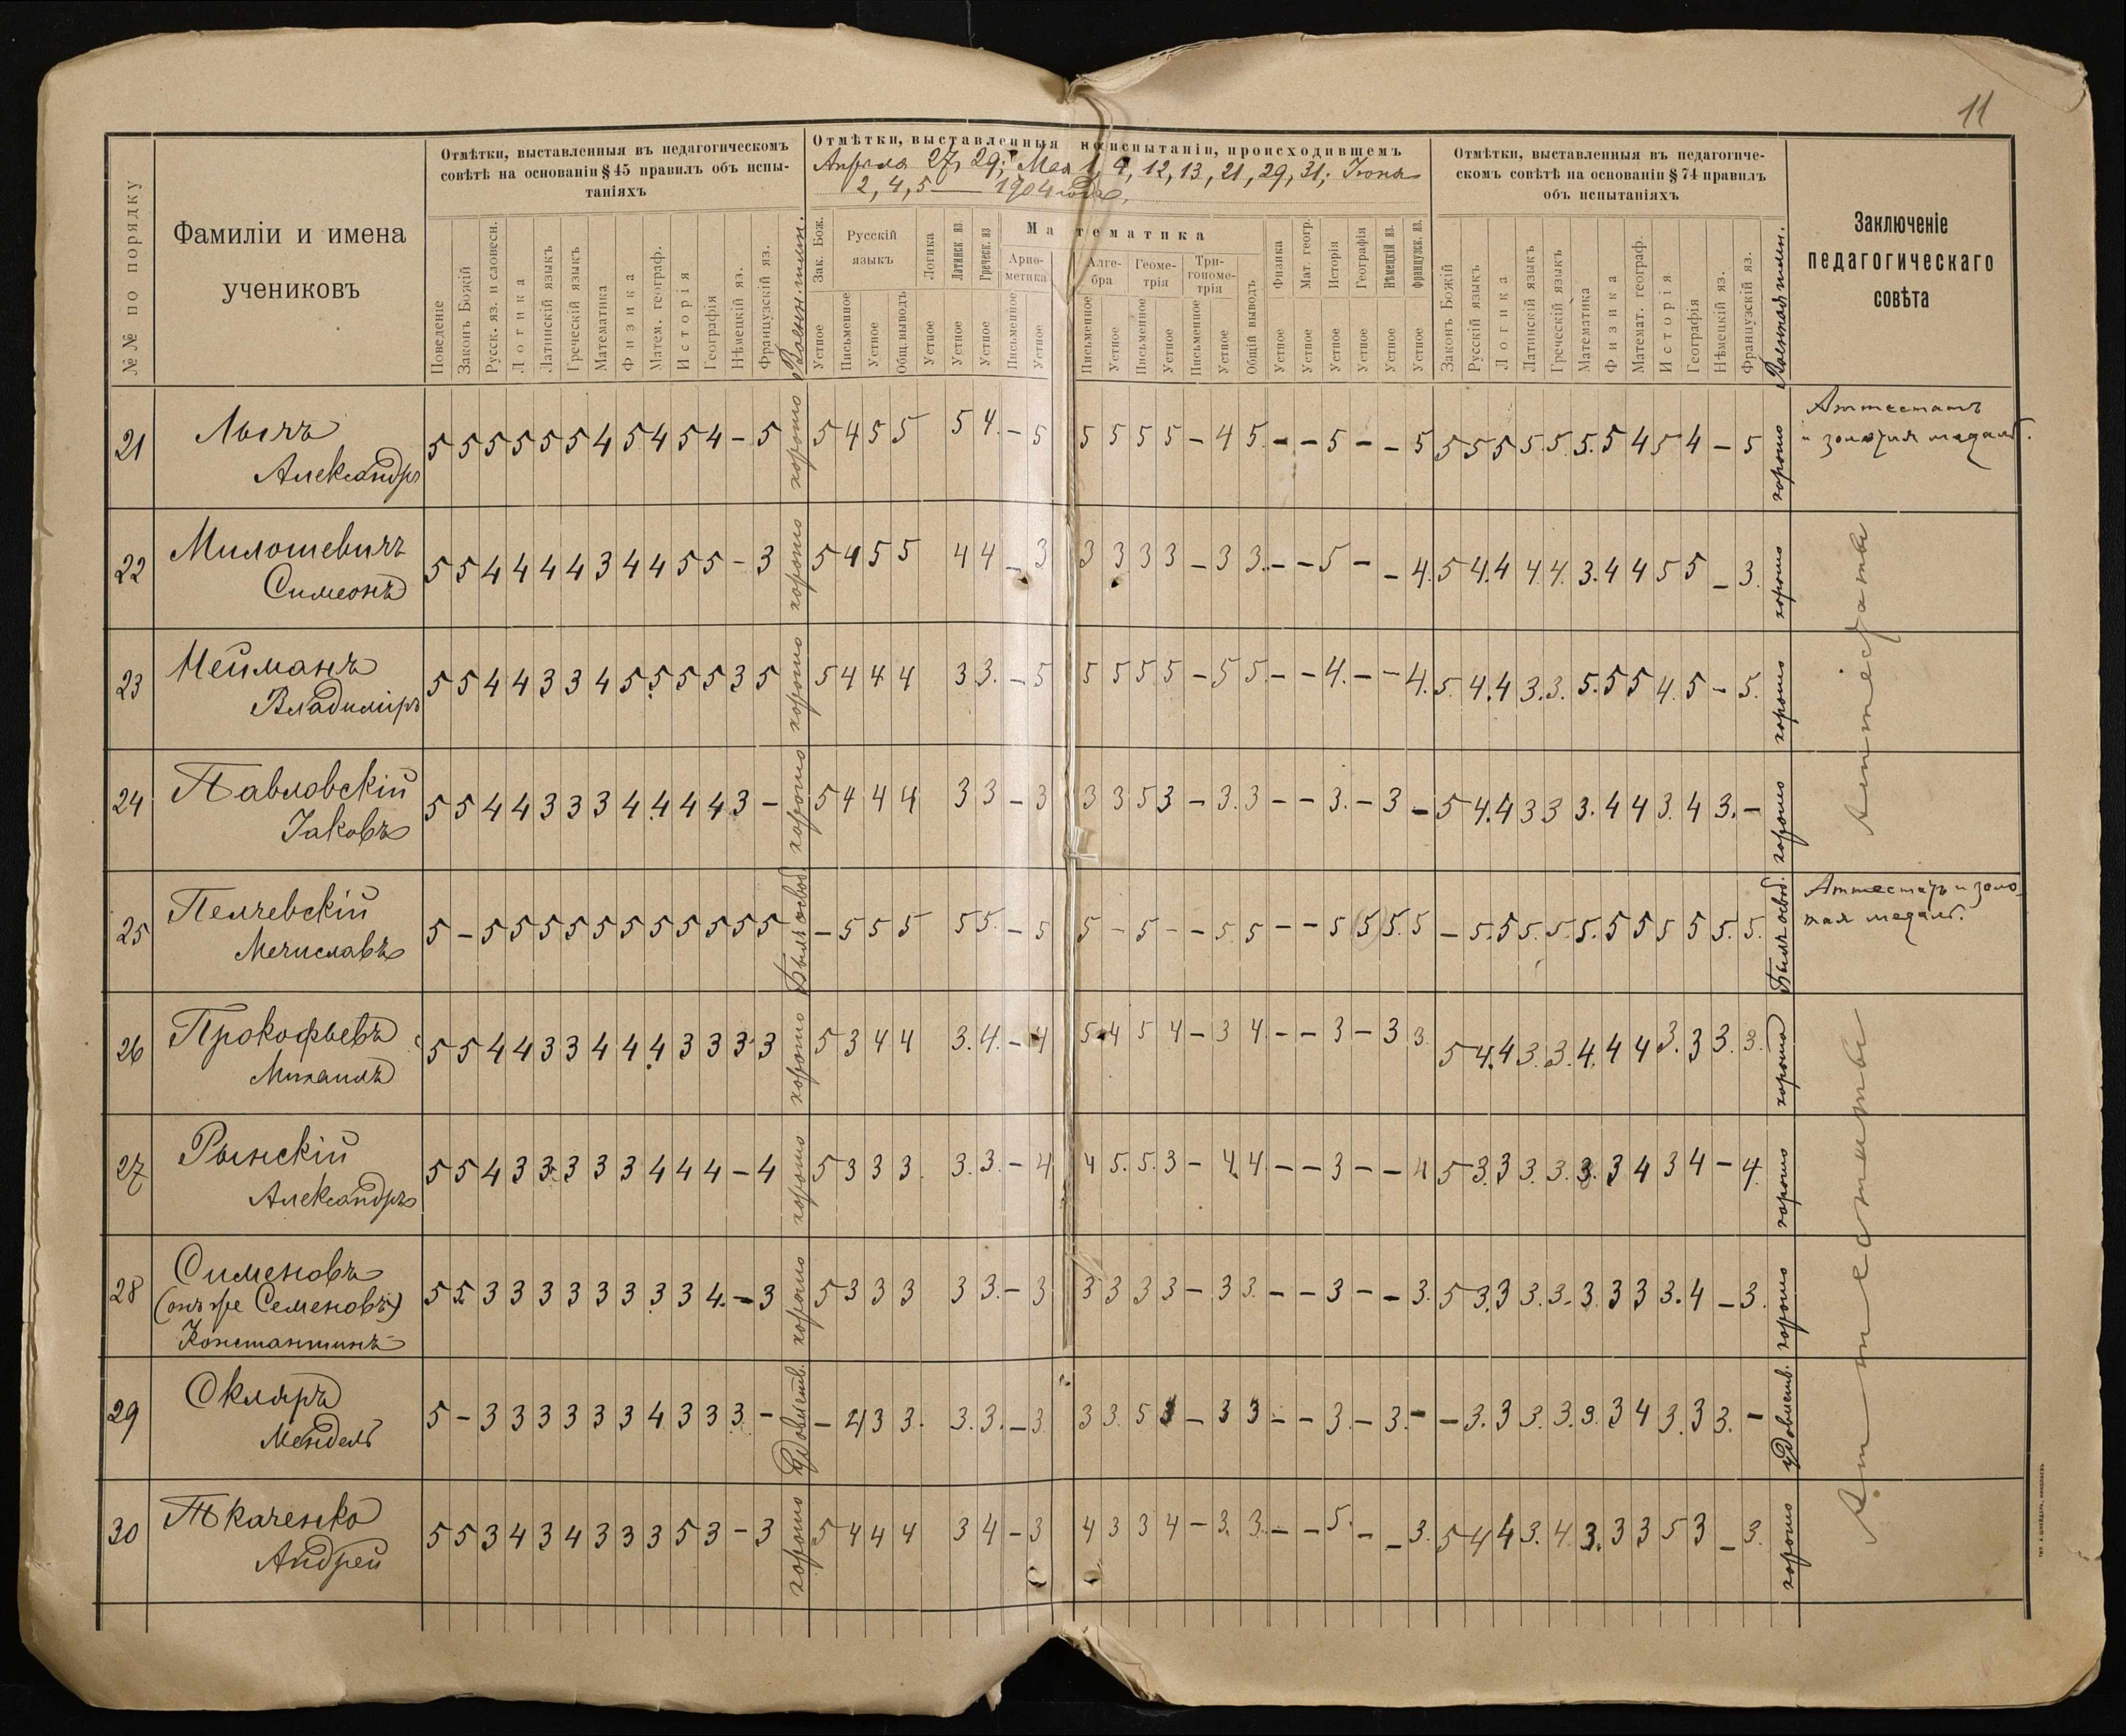 11
№№ по порядку
Фамиліи и имена
учениковъ
Отмѣтки, выставленныя въ педагогическомъ
совѣтѣ на основаніи § 45 правилъ объ испы-
таніяхъ
Отмѣтки, выставленныя на испытаніи, происходившемъ
Апрѣля 27, 29; Мая 1, 4, 12, 13, 21, 29, 31; Іюня
2, 4, 5 — 1904 года.
Отмѣтки, выставленныя въ педагогиче-
скомъ совѣтѣ на основаніи § 74 правилъ
объ испытаніяхъ
Заключеніе
педагогическаго
совѣта
Поведеніе
Законъ Божій
Русск. яз. и словесн.
Логика
Латинскій языкъ
Греческій языкъ
Математика
Физика
Матем. географ.
Исторія
Географія
Нѣмецкій яз.
Французскій яз.
Зак. Бож.
Русскій
языкъ
Логика
Латинск. яз
Греческ. яз
Математика
Арие-
метика
Алге-
бра
Геоме-
трія
Три-
гономе-
трія
Физика
Мат. геогр.
Исторія
Географія
Нѣмецкій яз.
Французск. яз.
Устное
Письменное
Устное
Общ. выводъ
Устное
Устное
Устное
Письменное
Устное
Письменное
Устное
Письменное
Устное
Письменное
Устное
Общій выводъ
Устное
Устное
Устное
Устное
Устное
Устное
Законъ Божій
Русскій языкъ
Логика
Латинскій языкъ
Греческій языкъ
Математика
Физика
Математ. географ.
Исторія
Географія
Нѣмецкій яз.
Французскій яз.
21 Лысякъ
Александръ
5 5 5 5 5 5 4 5 4 5 4 – 5 хорошо 5 4 5 5 5 4. – 5 5 5 5 5 – 4 5. – – 5 – – 5 5 5 5 5. 5. 5. 5 4 5 4 – 5 хорошо
Аттестатъ
и золотая медаль.
22 Милошевичъ
Симеонъ
5 5 4 4 4 4 3 4 4 5 5 – 3 хорошо 5 4 5 5 4 4 – 3 3 3 3 3 – 3 3. – – 5 – – 4. 5 4. 4 4. 4. 3. 4 4 5 5 – 3. хорошо
23 Нейманъ
Владиміръ
5 5 4 4 3 3 4 5 5 5 5 3 5 хорошо 5 4 4 4 3 3. – 5 5 5 5 5 – 5 5. – – 4. – – 4. 5. 4. 4 3. 3. 5. 5 5 4. 5 – 5. хорошо
24 Павловскій
Іаковъ
5 5 4 4 3 3 3 4 4 4 4 3 – хорошо 5 4 4 4 3 3 – 3 3 3 5 3 – 3. 3 – – 3. – 3 – 5 4. 4 3 3 3. 4 4 3. 4 3. – хорошо
Аттестаты
25 Пелчевскій
Мечиславъ
5 – 5 5 5 5 5 5 5 5 5 5 5 Былъ освоб. – 5 5 5 5 5. – 5 5 – 5 – – 5 5 – – 5 5 5. 5 – 5. 5 5. 5. 5. 5 5 5 5 5. 5. Былъ освоб.
Аттестатъ и золо-
тая медаль.
26 Прокофьевъ
Михаилъ
5 5 4 4 3 3 4 4 4 3 3 3 3 хорошо 5 3 4 4 3. 4. – 4 5 4 5 4 – 3 4. – – 3 – 3 3. 5 4. 4 3. 3. 4. 4 4 3. 3 3. 3. хорошо
27 Рынскій
Александръ
5 5 4 3 3 3 3 3 4 4 4 – 4 хорошо 5 3 3 3. 3. 3. – 4 4 5. 5. 3 – 4. 4 – – 3 – – 4 5 3. 3 3. 3. 3. 3 4 3 4 – 4. хорошо
28 Сименовъ
(онъ же Семеновъ)
Константинъ
5 5 3 3 3 3 3 3 3 3 4. – 3 хорошо 5 3 3 3 3 3. – 3 3 3 3 3 – 3 3. – – 3 – – 3. 5 3. 3 3. 3. 3. 3 3 3. 4 – 3. хорошо
29 Скляръ
Мендель
5 – 3 3 3 3 3 3 4 3 3 3 – Удовлетв. – 4 3 3. 3. 3. – 3 3 3. 5 3 – 3 3 – – 3. – 3. – – 3. 3 3. 3. 3. 3 4 3. 3 3. – Удовлетв.
30 Ткаченко
Андрей
5 5 3 4 3 4 3 3 3 5 3 – 3 хорошо 5 4 4 4 3 4 – 3 4 3 3 4 – 3. 3. – – 5. – – 3. 5 4 4 3. 4. 3. 3 3 5 3 – 3. хорошо
Аттестаты